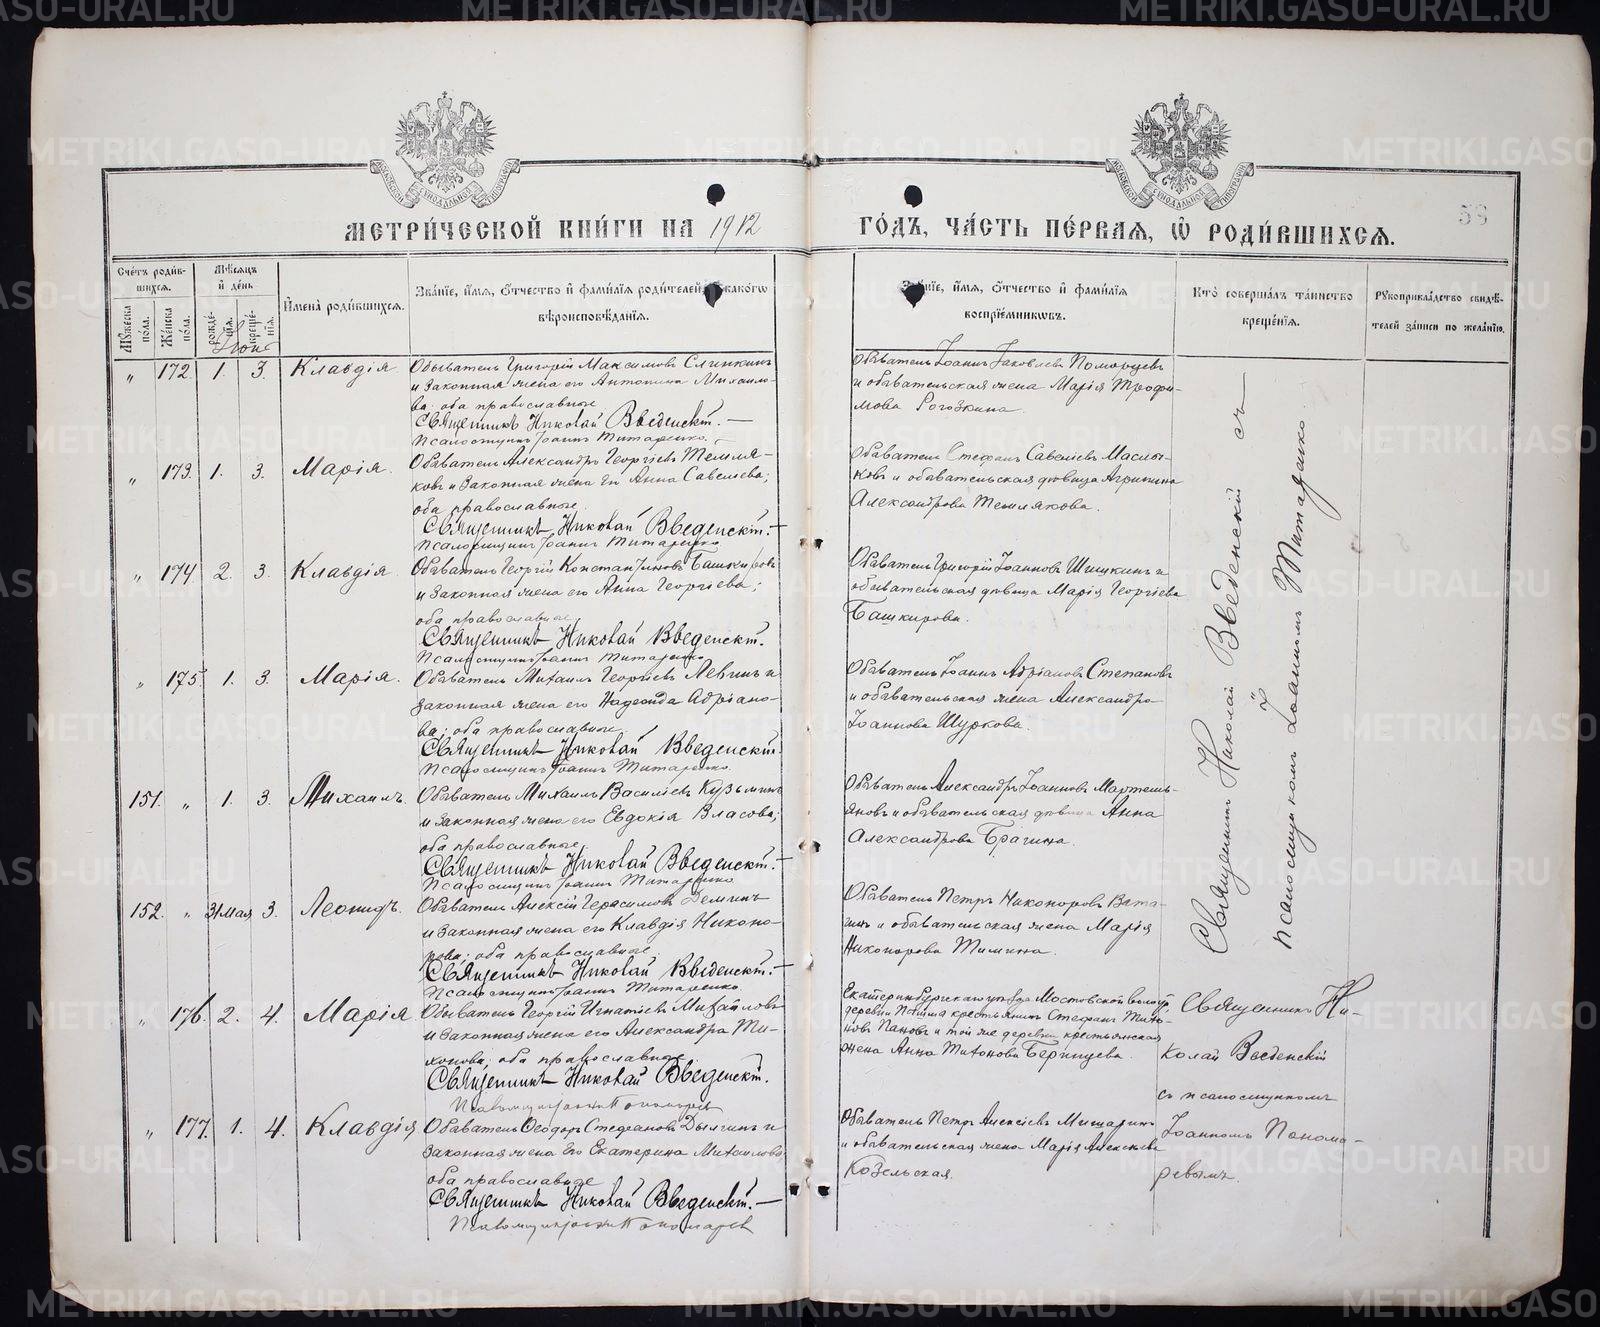 МЕТРИ́ЧЕСКОЙ КНИ́ГИ НА 1912 ГО́ДЪ, ЧА́СТЬ ПЕ́РВАЯ, Ѡ РОДИ́ВШИХСЯ.
58
Сче́тъ роди́вшихся.
Му́жеска по́ла.
Же́нска по́ла.
Мѣ́сяцъ и де́нь
рожде́нія.
креще́нія.
Имена̀ роди́вшихся.
Зва́ніе, и́мя, о́тчество и фами́лія роди́телей, и како́гѡ вѣроисповѣ́данія.
Зва́ніе, и́мя, о́тчество и фами́лія воспріе́мниковъ.
Кто̀ соверша́лъ та́инство креще́нія.
Рукоприкла́дство свидѣ́телей за́писи по жела́нію.
Іюнь
„ 172. 1. 3. Клавдія
Обыватель Григорій Максимовъ
и законная жена его Антонина Михаило-
ва; оба православные
Священникъ Николай Введенскій.
Псаломщикъ Іоаннъ Титаренко.
Обыватель Іоаннъ Іаковлевъ Поморцевъ
и обывательская жена Марія Трофи-
мова Рогозкина.
„ 173. 1. 3. Марія.
Обыватель Александръ Георгіевъ Темля-
ковъ и законная жена его Анна Савелева;
оба православные.
Священникъ Николай Введенскій.
Псаломщикъ Іоаннъ Титаренко
Обыватель Стефанъ Савеліевъ Маслы-
ковъ и обывательская дѣвица Агрипина
Александрова Темлякова.
„ 174. 2. 3. Клавдія
Обыватель Георгій Константиновъ Башкировъ
и законная жена его Анна Георгіева;
оба православные.
Священникъ Николай Введенскій.
Псаломщикъ Іоаннъ Титаренко
Обыватель Григорій Іоанновъ Шишкинъ и
обывательская дѣвица Марія Георгіева
Башкирова.
„ 175. 1. 3. Марія.
Обыватель Михаилъ Георгіевъ Левинъ и
законная жена его Надежда Адріано-
ва; оба православные
Священникъ Николай Введенскій.
Псаломщикъ Іоаннъ Титаренко.
Обыватель Іоаннъ Адріановъ Степановъ
и обывательская жена Александра
Іоаннова Шуркова.
151. „ 1. 3. Михаилъ.
Обыватель Михаилъ Василіевъ Кузьминъ
и законная жена его Евдокія Власова;
оба православные.
Священникъ Николай Введенскій.
Псаломщикъ Іоаннъ Титаренко
Обыватель Александръ Іоанновъ Мартемь-
яновъ и обывательская дѣвица Анна
Александрова Брагина.
152. „ 31 мая 3. Леонидъ.
Обыватель Алексій Герасимовъ Деминъ
и законная жена его Клавдія Никоно-
рова; оба православные.
Священникъ Николай Введенскій.
Псаломщикъ Іоаннъ Титаренко.
Обыватель Петръ Никоноровъ Вата-
и обывательская жена Марія
Никонорова Тимина.
Священникъ Николай Введенскій съ
псаломщикомъ Іоанномъ Титаренко.
„ 176. 2. 4. Марія
Обыватель Георгій Игнатіевъ Михайловъ
и законная жена его Александра Ти-
хонова; оба православные.
Священникъ Николай Введенскій.
Псаломщикъ Іоаннъ Пономаревъ
Екатеринбургскаго уѣзда Мостовской волости,
деревни крестьянинъ Стефанъ Тито-
новъ Пановъ и той же деревни крестьянская
жена Анна Титонова Берницева.
Священникъ Ни-
колай Введенскій
съ псаломщикомъ
Іоанномъ Понома-
ревымъ.
„ 177. 1. 4. Клавдія
Обыватель Ѳеодоръ Стефановъ Дылдинъ и
законная жена его Екатерина Михаилова,
оба православные
Священникъ Николай Введенскій.
Псаломщикъ Іоаннъ Пономаревъ
Обыватель Петръ Алексіевъ Мишаринъ
и обывательская жена Марія Алексіева
Козельская.
METRIKI.GASO-URAL.RU